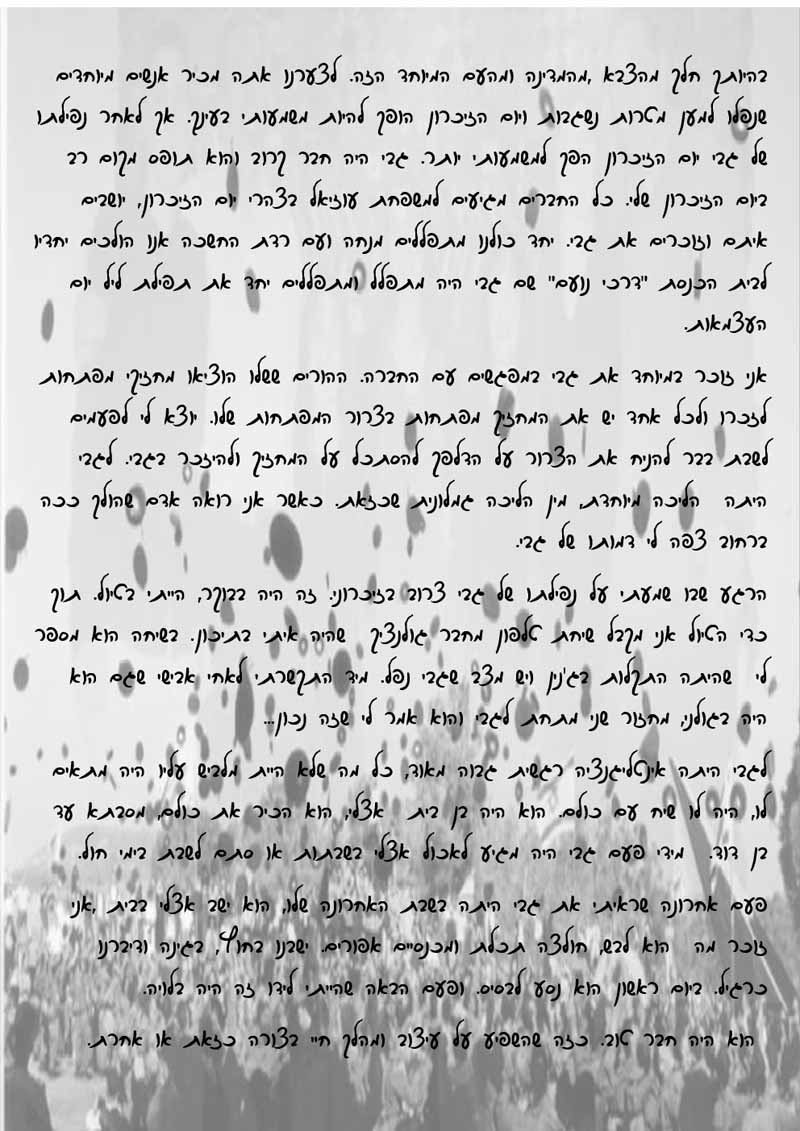 בהיותך חלק מהצבא ,מהמדינה ומהעם המיוחד הזה. לצערנו אתה מכיר אנשים מיוחדים
שנפלו למען מטרות נשגבות ויום הזיכרון הופך להיות משמעותי בעינך. אך לאחר נפילתו
של גבי יום הזיכרון הפך למשמעותי יותר. גבי היה חבר קרוב והוא תופס מקום רב
ביום הזיכרון שלי. כל החברים מגיעים למשפחת עוזיאל בצהרי יום הזיכרון, יושבים
איתם וזוכרים את גבי. יחד כולנו מתפללים מנחה ועם רדת החשכה אנו הולכים יחדיו
לבית הכנסת "דרכי נועם" שם גבי היה מתפלל ומתפללים יחד את תפילת ליל יום
העצמאות.
אני זוכר במיוחד את גבי במפגשים עם החברה. ההורים ששלו הוציאו מחזיקי מפתחות
לזכרו ולכל אחד יש את המחזיק מפתחות בצרור המפתחות שלו. יוצא לי לפעמים
לשבת בבר להניח את הצרור על הדלפק להסתכל על המחזיק ולהיזכר בגבי. לגבי
היתה הליכה מיוחדת, מין הליכה גמלונית שכזאת. כאשר אני רואה אדם שהולך ככה
ברחוב צפה לי דמותו של גבי.
הרגע שבו שמעתי על נפילתו של גבי צרוב בזיכרוני. זה היה בבוקר, הייתי בטיול. תוך
כדי הטיול אני מקבל שיחת טלפון מחבר גולנציק שהיה איתי בתיכון. בשיחה הוא מספר
לי שהיתה התקלות בג'נין ויש מצב שגבי נפל. מיד התקשרתי לאחי אבישי שגם הוא
היה בגולני, מחזור שני מתחת לגבי והוא אמר לי שזה נכון...
לגבי היתה אינטליגנציה רגשית גבוה מאוד, כל מה שלא היית מלביש עליו היה מתאים
לו, היה לו שיח עם כולם. הוא היה בן בית אצלי, הוא הכיר את כולם, מסבתא עד
בן דוד. מידי פעם גבי היה מגיע לאכול אצלי בשבתות או סתם לשבת בימי חול.
פעם אחרונה שראיתי את גבי היתה בשבת האחרונה שלו, הוא ישב אצלי בבית ,אני
זוכר מה הוא לבש, חולצה תכלת ומכנסיים אפורים. ישבנו בחוץ, בגינה ודיברנו
כרגיל. ביום ראשון הוא נסע לבסיס. ופעם הבאה שהייתי לידו זה היה בלויה.
הוא היה חבר טוב. כזה שהשפיע על עיצוב ומהלך חיי בצורה כזאת או אחרת.